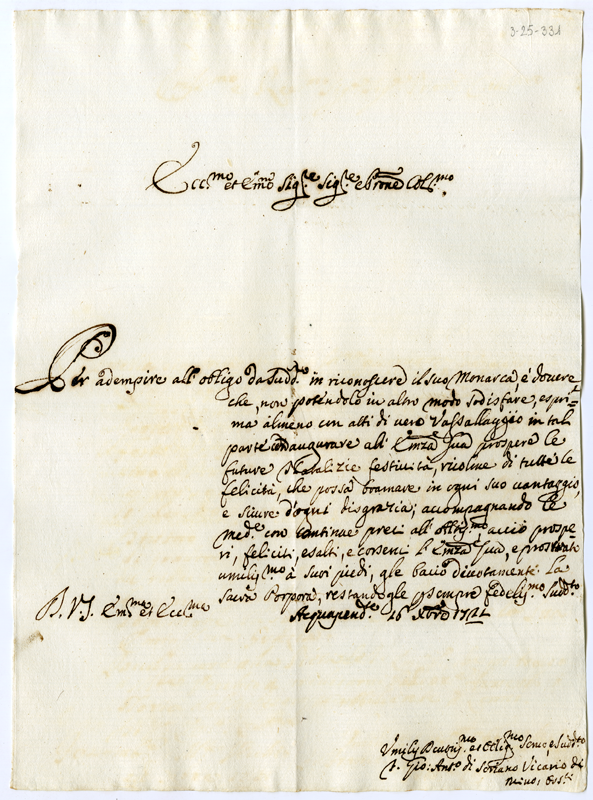 3-25-331
Ecc.mo et Em̃o Sig.re Sig.re e Prõne Col.mo
Per adempire all'obligo da Sudd.o in riconoscere il suo Monarca è dovere
che, non potendolo in altro modo sodisfare, espri-
ma almeno con atti di vero Vassallaggio in tal
parte coll'augurare all'Em̃za Sua prospere le
future Natalizie festività, ricolme di tutte le
felicità, che possa bramare in ogni suo vantaggio,
e sicure d'ogni disgrazia; accompagnando le
med.e con continue preci all'Altiss.mo acciò prospe-
ri, feliciti, esalti, e conservi l'Em̃za Sua, e prostrato
umiliss.mo a suoi piedi, gle bacio divotamente la
Sacra Porpora, restandogle p sempre fedeliss.mo Sudd.to
D. V. S. Em.ma et Ecc.ma
Acquapend.e 16 Xbre 1721
Umiliss. Devotiss.mo et Oblig.mo Servo, e Sudd.to
Ant.o di Soriano Vicario di